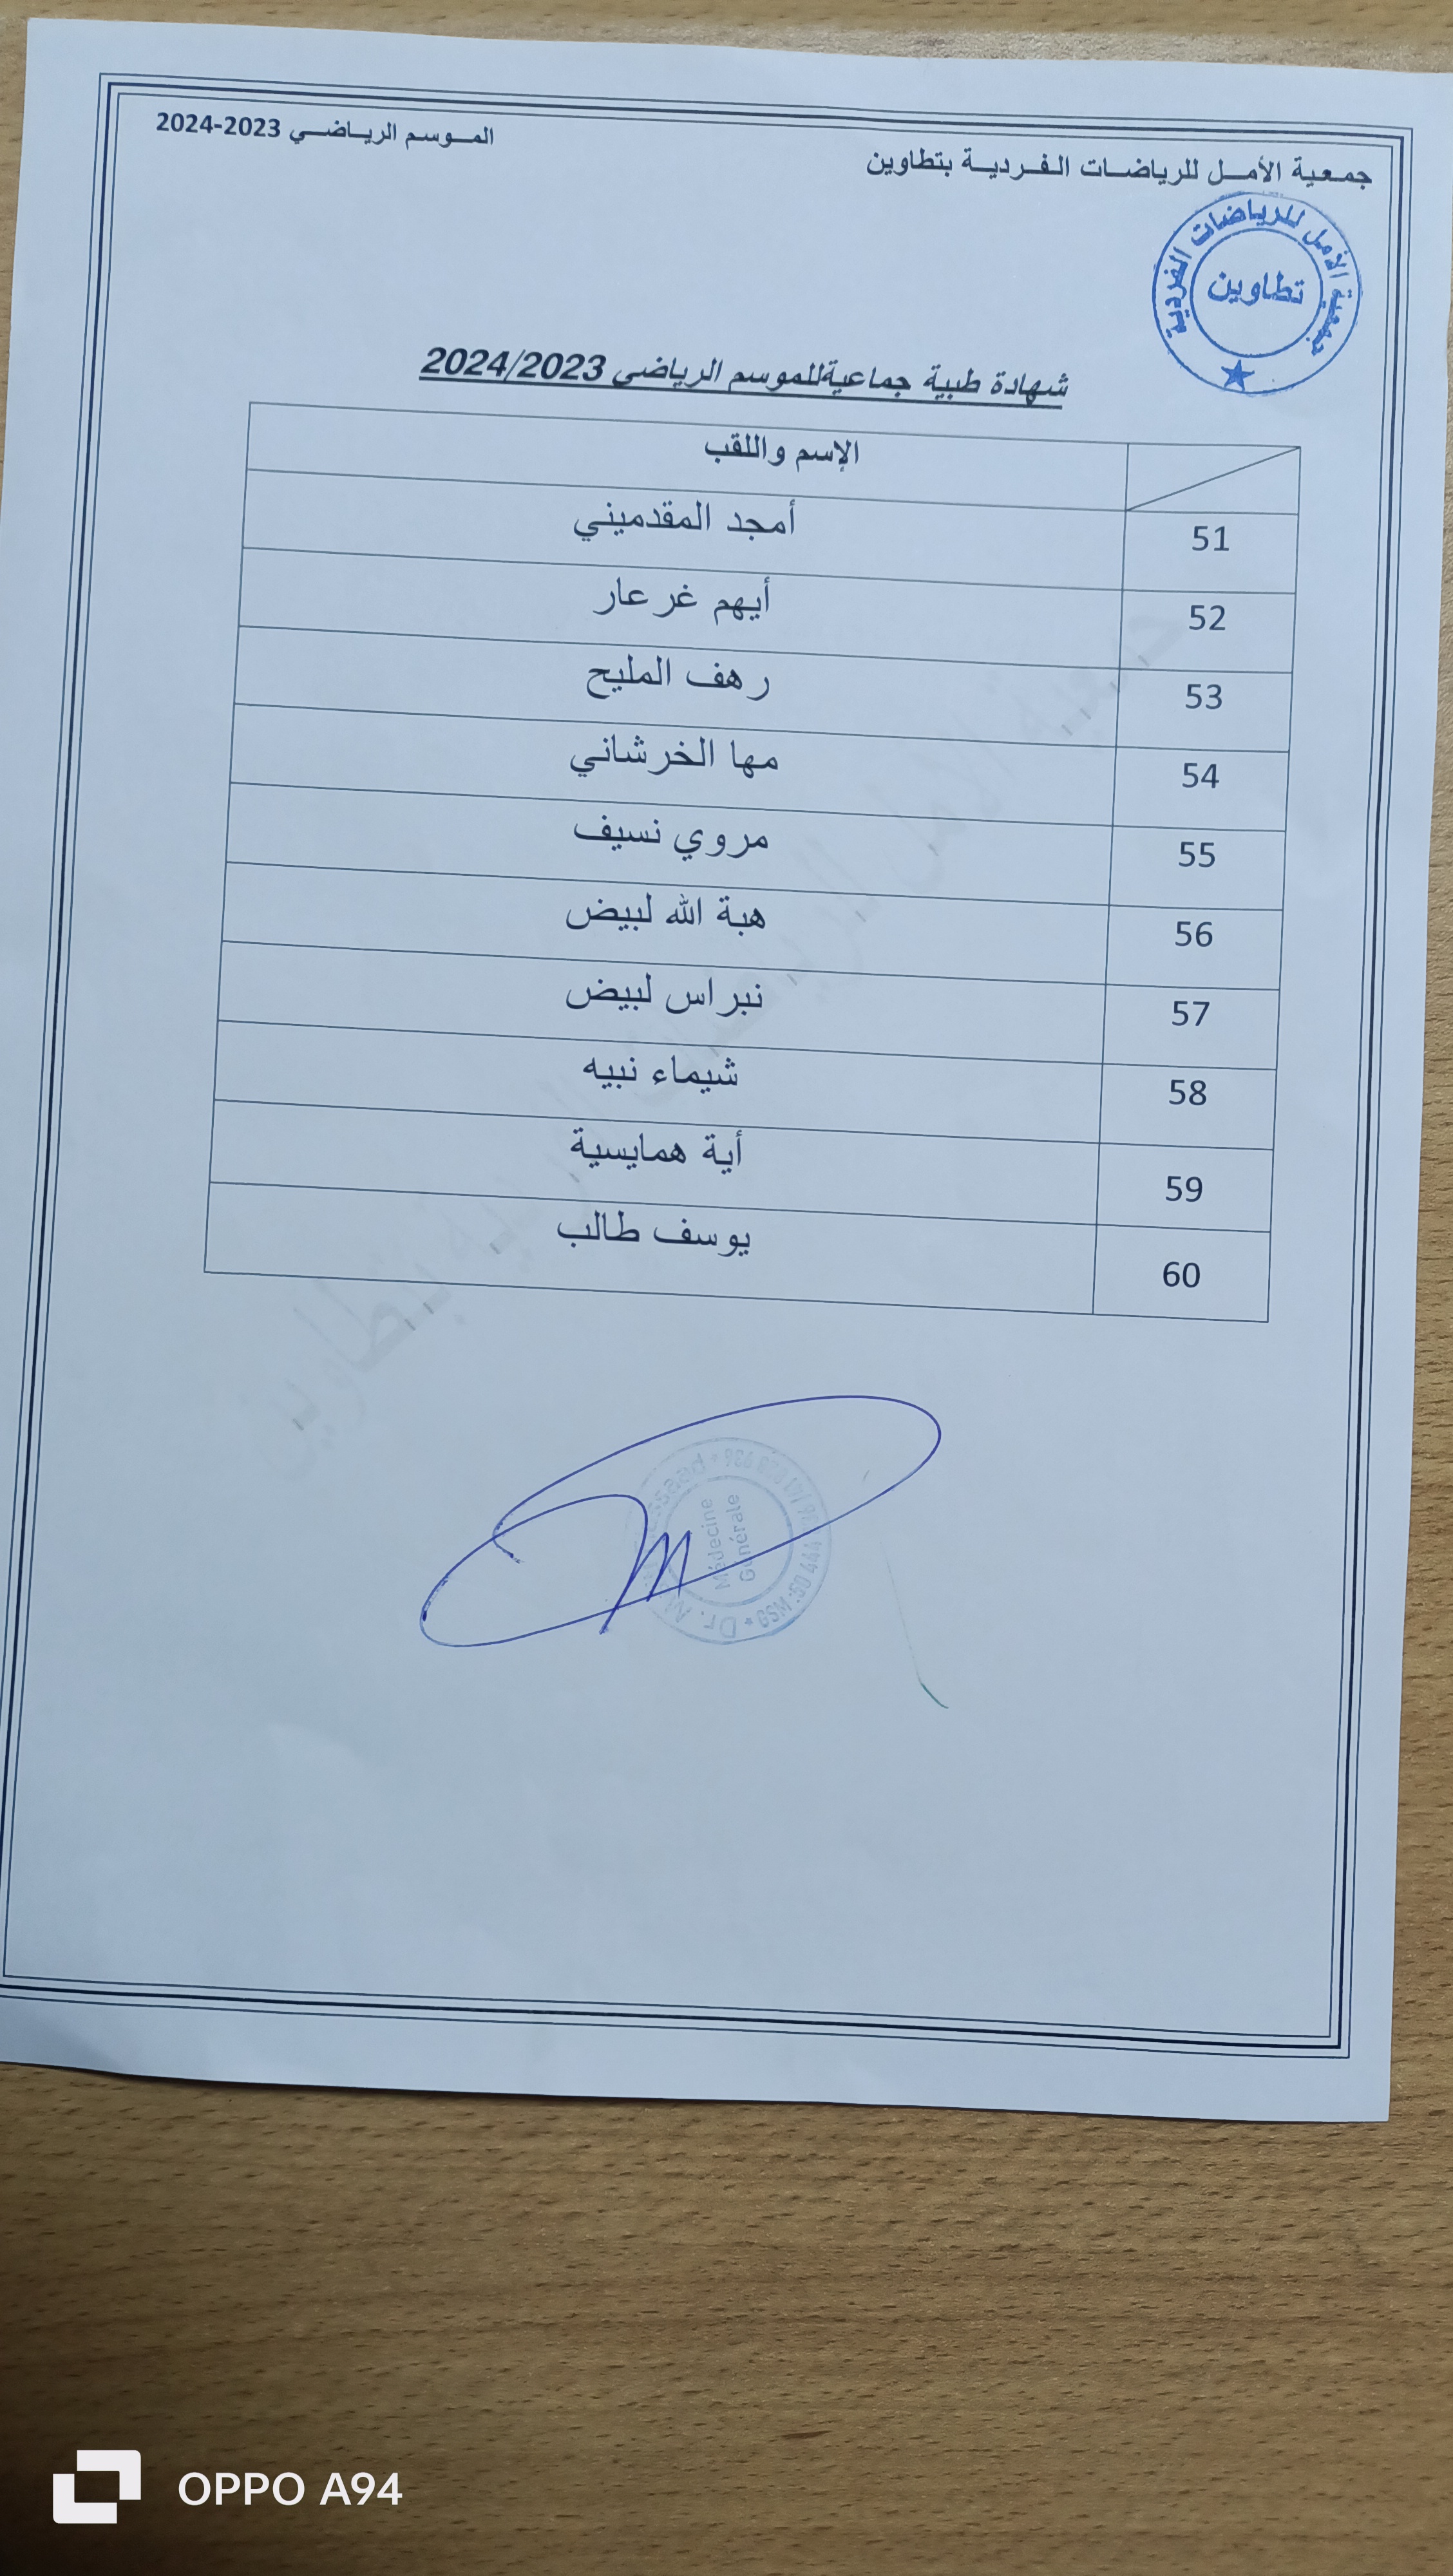 جمعية الأمل للرياضات الفردية بتطاوين
الموسم الرياضي 2023-2024
جمعية الأمل للرياضات الفردية
تطاوين
شهادة طبية جماعيةللموسم الرياضي 2024/2023
الإسم واللقب
51 أمجد المقدميني
52 أيهم غرعار
53 رهف المليح
54 مها الخرشاني
55 مروي نسيف
56 هبة الله لبيض
57 نبراس لبيض
58 شيماء نبيه
59 أية همايسية
60 يوسف طالب
جمعية الأمل للرياضات الفردية بتطاوين
Dr. M
Médecine
Générale
GSM :50 444
OPPO A94